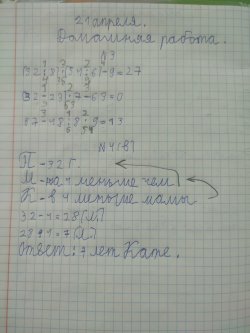 21 апреля.
Домашняя работа.
№3
(32:8)·(54:6)-9=27
(32-23)·7-63=0
67-48:8·9=13
№4(в)
П - 32 г.
М - на 4 меньше чем
К - в 4 меньше мамы
32-4=28(Л)
28:4=7(Л)
Ответ: 7 лет Кате.